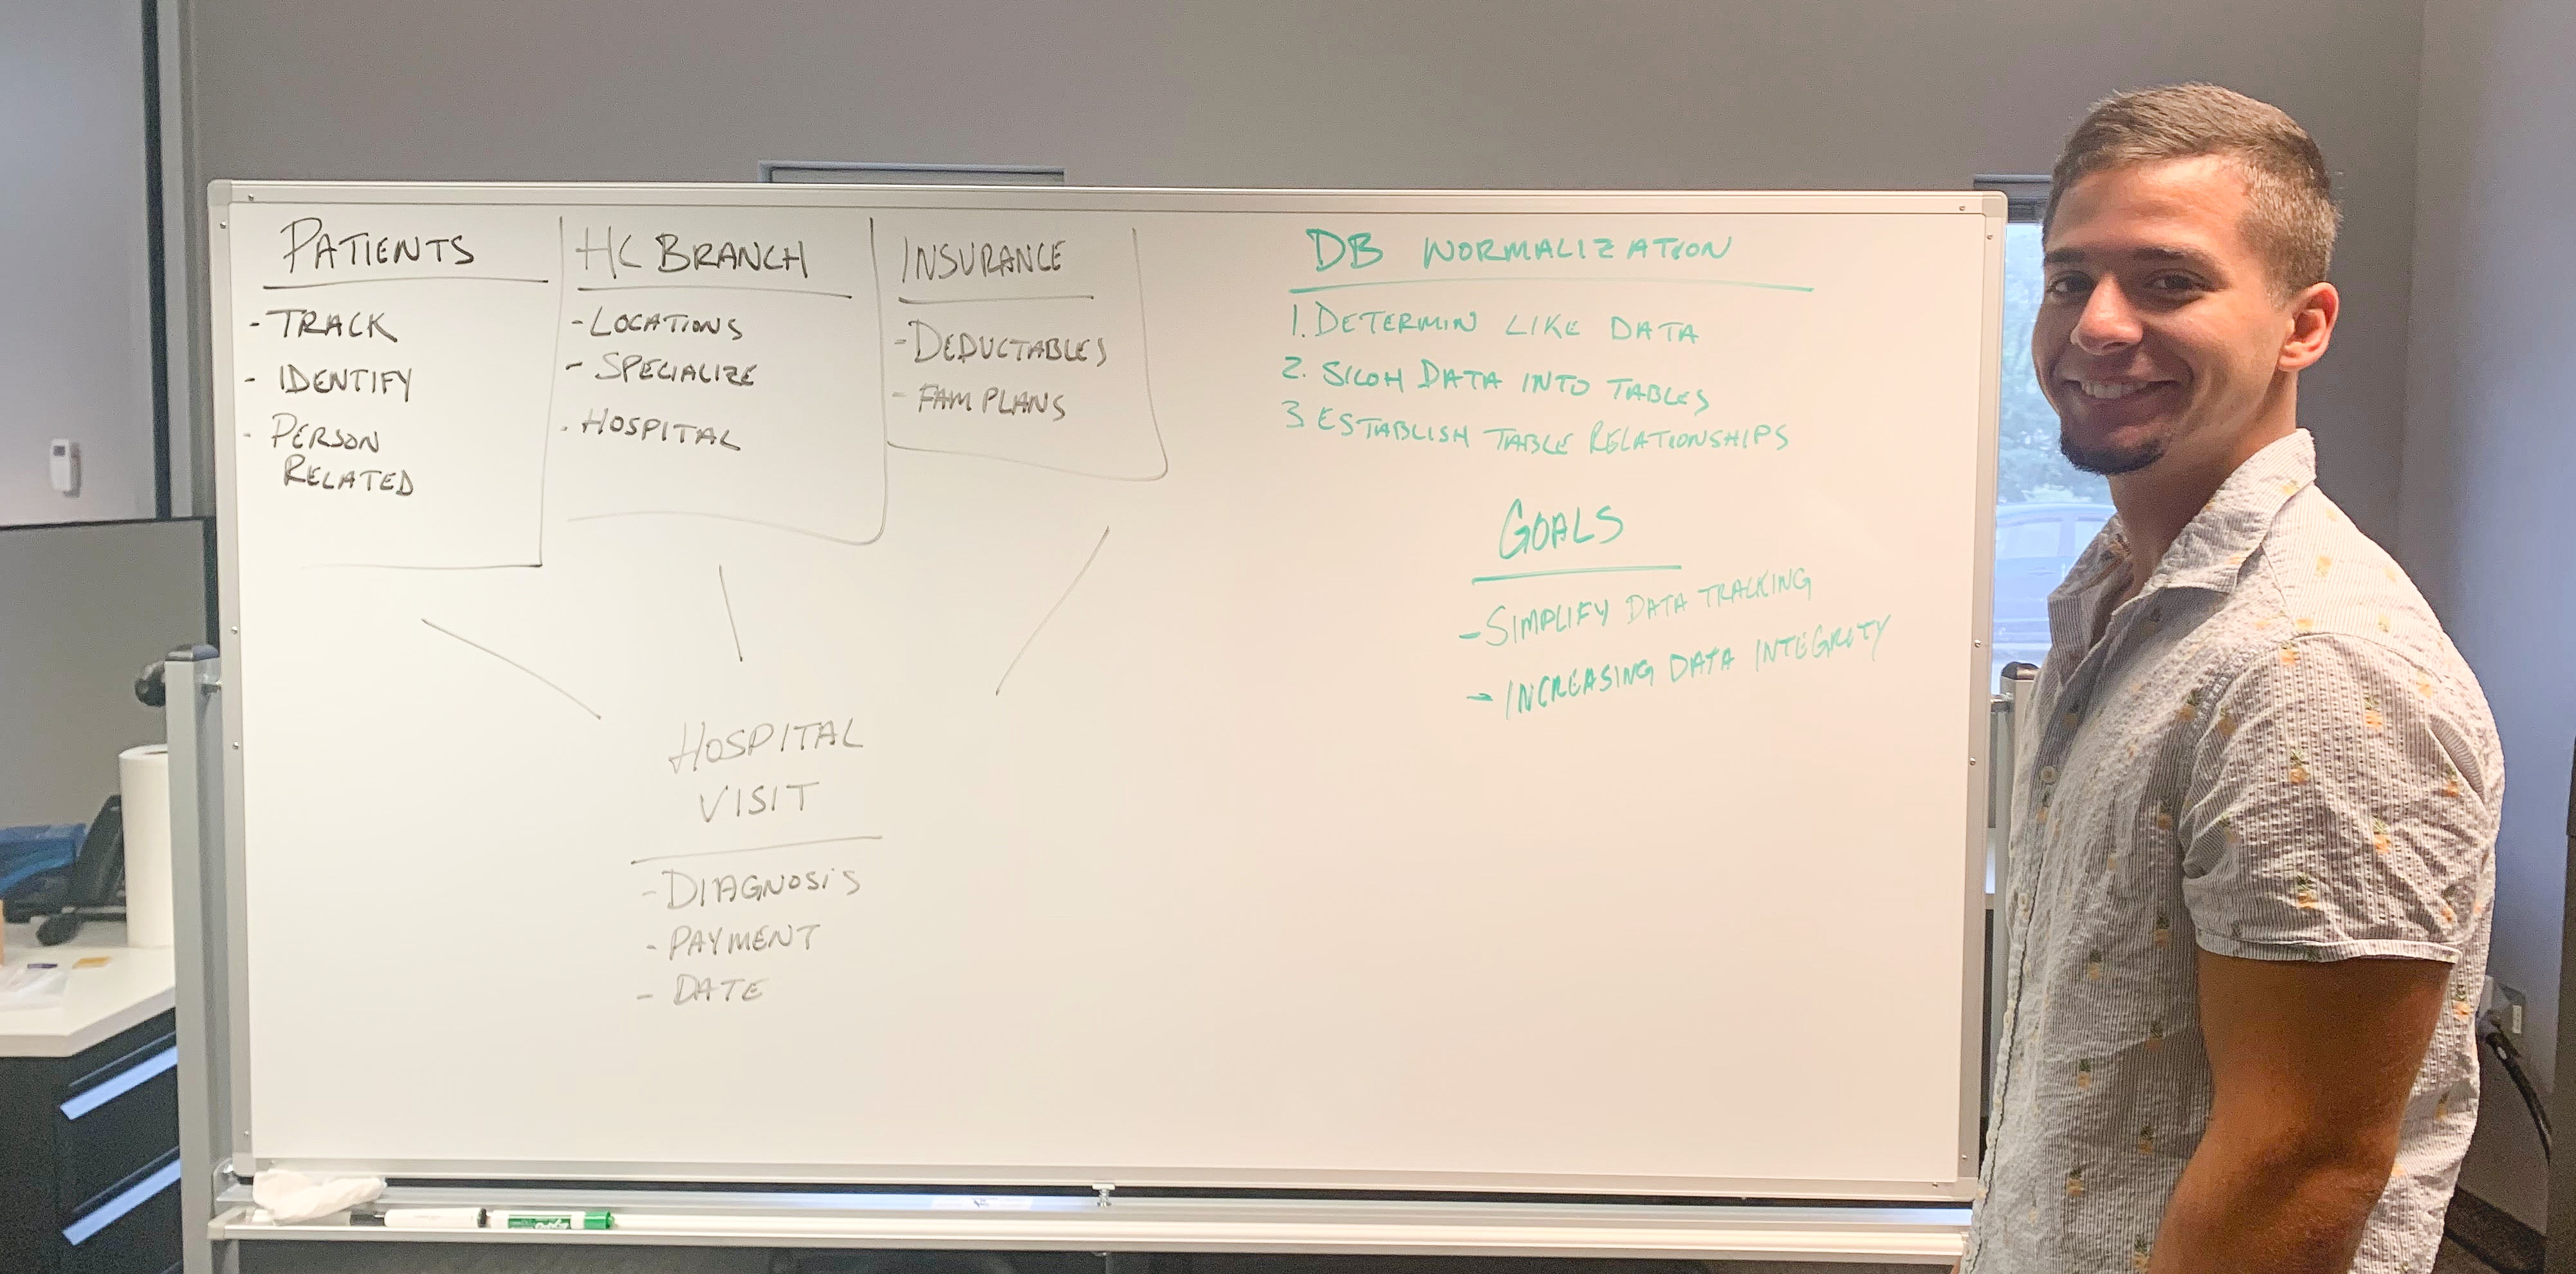 PATIENTS
- TRACK
- IDENTIFY
- PERSON
RELATED
HC BRANCH
- LOCATIONS
- SPECIALIZE
- HOSPITAL
INSURANCE
- DEDUCTABLES
- FAM PLANS
HOSPITAL
VISIT
- DIAGNOSIS
- PAYMENT
- DATE
DB NORMALIZATION
1. DETERMIN LIKE DATA
2. SILOH DATA INTO TABLES
3 ESTABLISH TABLE RELATIONSHIPS
GOALS
- SIMPLIFY DATA TRACKING
- INCREASING DATA INTEGRITY